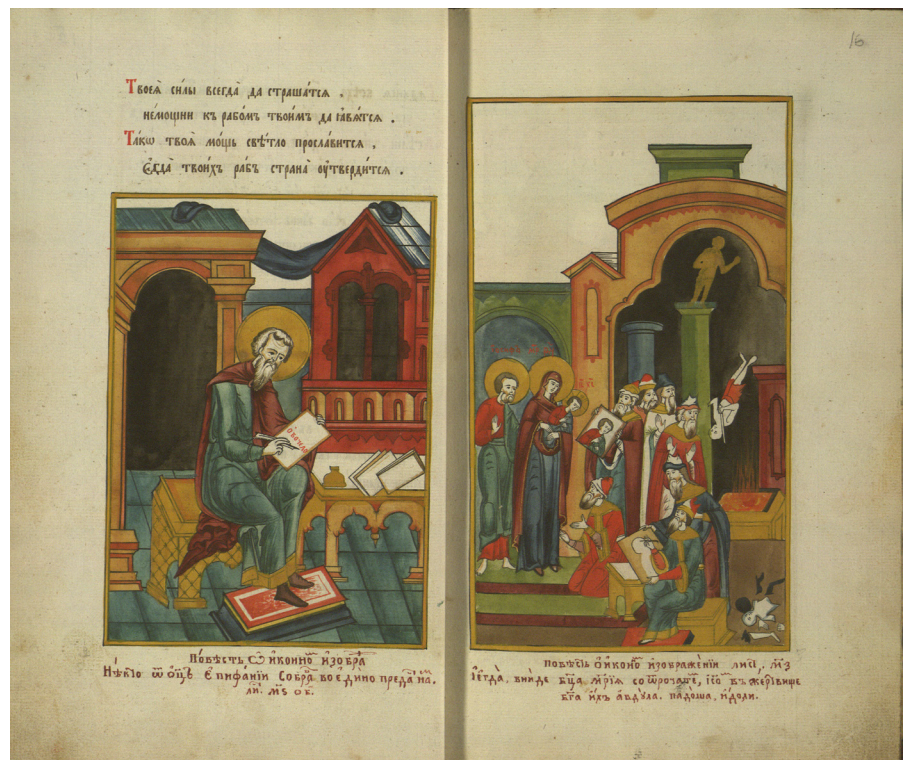 Твоеѧ̀ си́лы всегда̀ да страша́тсѧ .
не́мощни къ рабо́мъ твои́мъ да ꙗ҆вѧ́тсѧ .
Та́кѡ твоѧ̀ мо́щь свѣ́тло просла́витсѧ ,
Є҆гда̀ твои́хъ ра́бъ страна̀ ᲂу҆тверди́тсѧ .
По́вѣсть ѿ иконно изобра
Епифа́нїи собра во еди́но преда на
ли. м҃ѕ об.
16
повѣсть о иконно изображенїи лис. м҃з
Егда, вниде бц҃а мр҃їа со отрочате, іс҃о въ жертвище
бг҃а ихъ авдула. падоша, идоли.